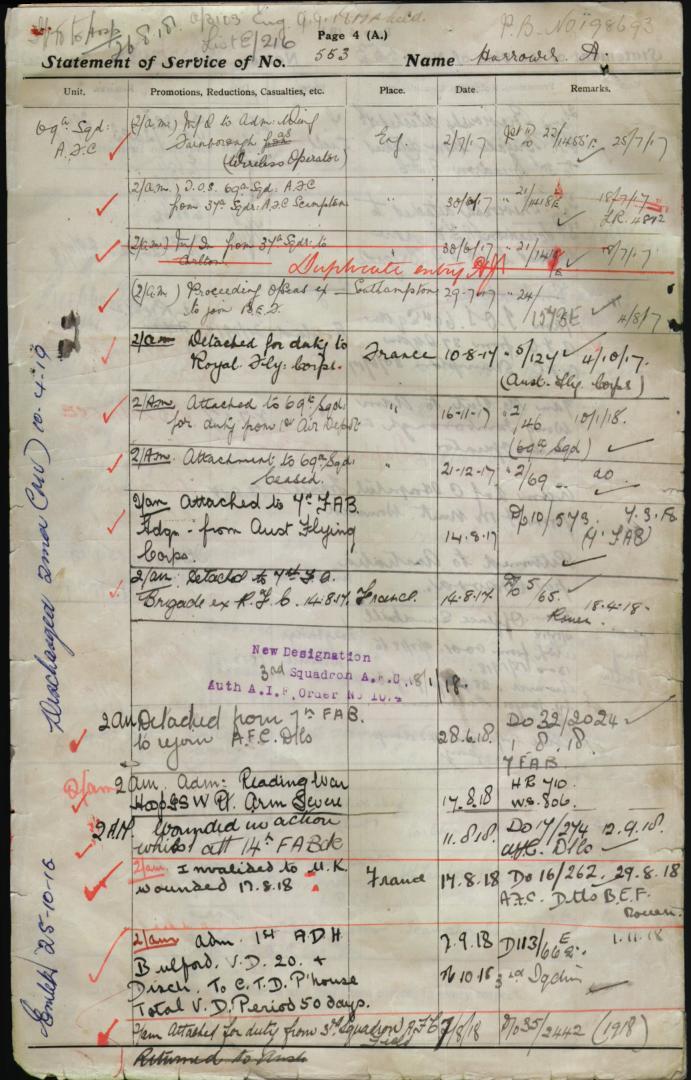 26.8.18.
List E/216
P.B. No 198693
Page 4 (A.)
Statement of Service of No. 553 Name Harrower. A.
Unit. Promotions, Reductions, Casualties, etc. Place. Date. Remarks.
69th Sqd: A.F.C
(2/a.m.) to Adm:
Farnborough
(Wireless Operator)
Eng. 2/7/17 25/7/17
2/a.m.) T.O.S. 69th Sqd: A.F.C
from 37th Sqdr: A.F.C Scampton
" 30/6/17 " 21/1418E 18/7/17
2/a.m.) from 37th Sqdr: to
30/6/17 " 21/1418E 18/7/17
Duplicate entry
(2/a.m.) Proceeding O'seas ex
to join B.E.F.
Southampton 29-7-17 " 24/ 4/8/17
2/am Detached for duty to
Royal Fly: Corps.
France 10-8-17 - 5/124 4/10/17.
(Aust. Fly. Corps)
2/Am. Attached to 69th Sqd:
for duty from 1st Air Depot
" 16-11-17 " 2/46 10/1/18.
(69th Sqd)
2/Am. Attachment to 69th Sqd:
ceased.
21-12-17 " 2/69 do
2/am Attached to 7th F.A.B.
Hdqn - from Aust Flying
Corps.
14.8.17 Do 10/573.
(7. FAB)
2/am: Detached to 7th F.A.
Brigade ex R.F.C. 14.8.17.
France. 14-8-17 Do 5/65. 18-4-18.
Rouen.
New Designation
3rd Squadron A.F.C. 18/1/18.
Auth A.I.F. Order No
2 am Detached from 7th FAB.
to rejoin A.F.C. Dtls
28.6.18. Do 32/2024
1.8.18.
7 FAB.
2/am 2 am. Adm: Reading War
Hosp GSW Rt. Arm Severe
17.8.18 HR 710.
WS. 806.
2 AM. Wounded in action
whilst att 14th FABde
11.8.18. Do 17/274 12.9.18.
AFC. Dtls
2/am. Invalided to U.K.
wounded 17.8.18
France 17.8.18 Do 16/262. 29.8.18
A.F.C. Dtls B.E.F.
Rouen.
2/am Adm. 1st A D H
Bulford. V.D. 20. +
Disch. To C.T.D. P'house
Total V.D. Period 50 days.
7.9.18 D113/66 1.11.18
10.18 3rd Sqdrn
2/am Attached for duty from 3rd Squadron A.F.C Field 7/8/18 Do 35/2442 (1918)
Returned to Aust
Discharged 2 MD 10.4.19
Enlisted 25-10-16